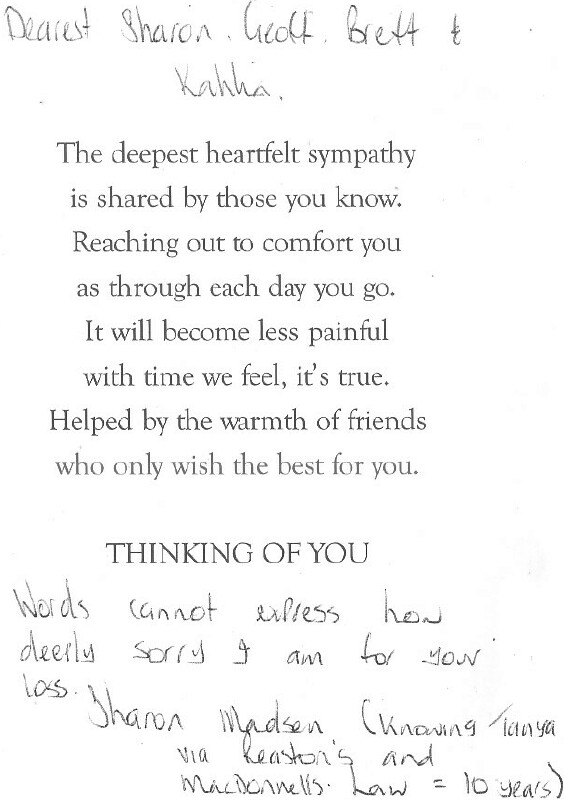 Dearest Sharon. Geoff. Brett &
Kahlia.
The deepest heartfelt sympathy
is shared by those you know.
Reaching out to comfort you
as through each day you go.
It will become less painful
with time we feel, it's true.
Helped by the warmth of friends
who only wish the best for you.
THINKING OF YOU
Words cannot express how
deeply sorry I am for your
loss.
Sharon Madsen (Knowing Tanya
via and
MacDonnells Law = 10 years)